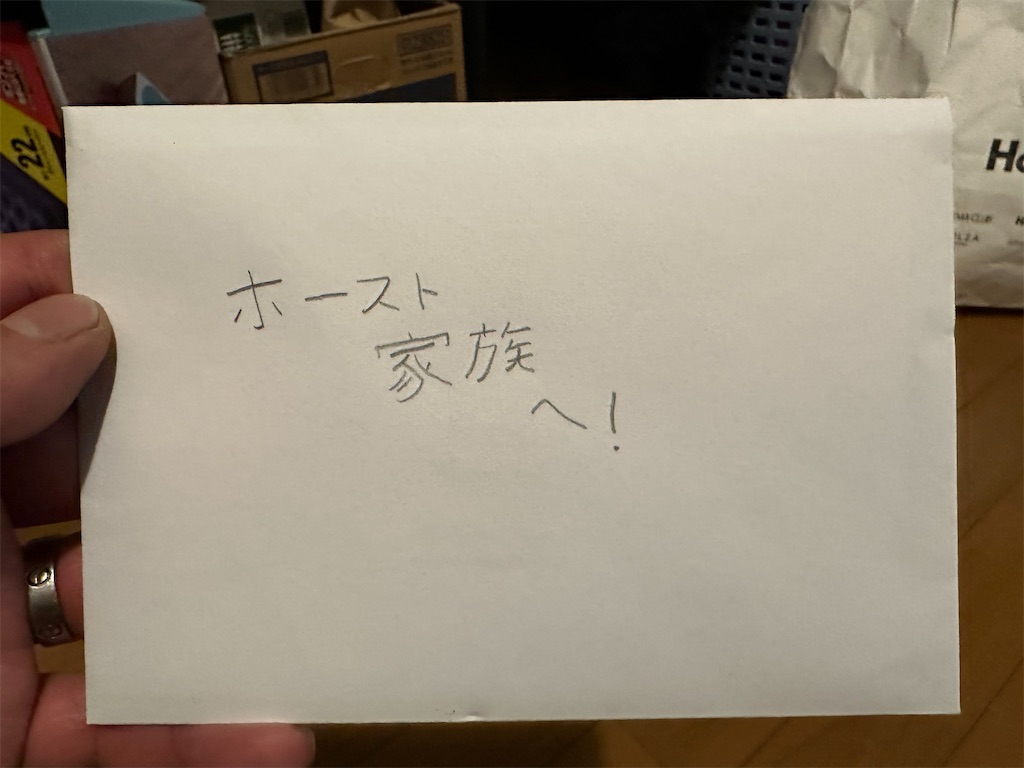 ホースト
家族
へ!
22
Ho